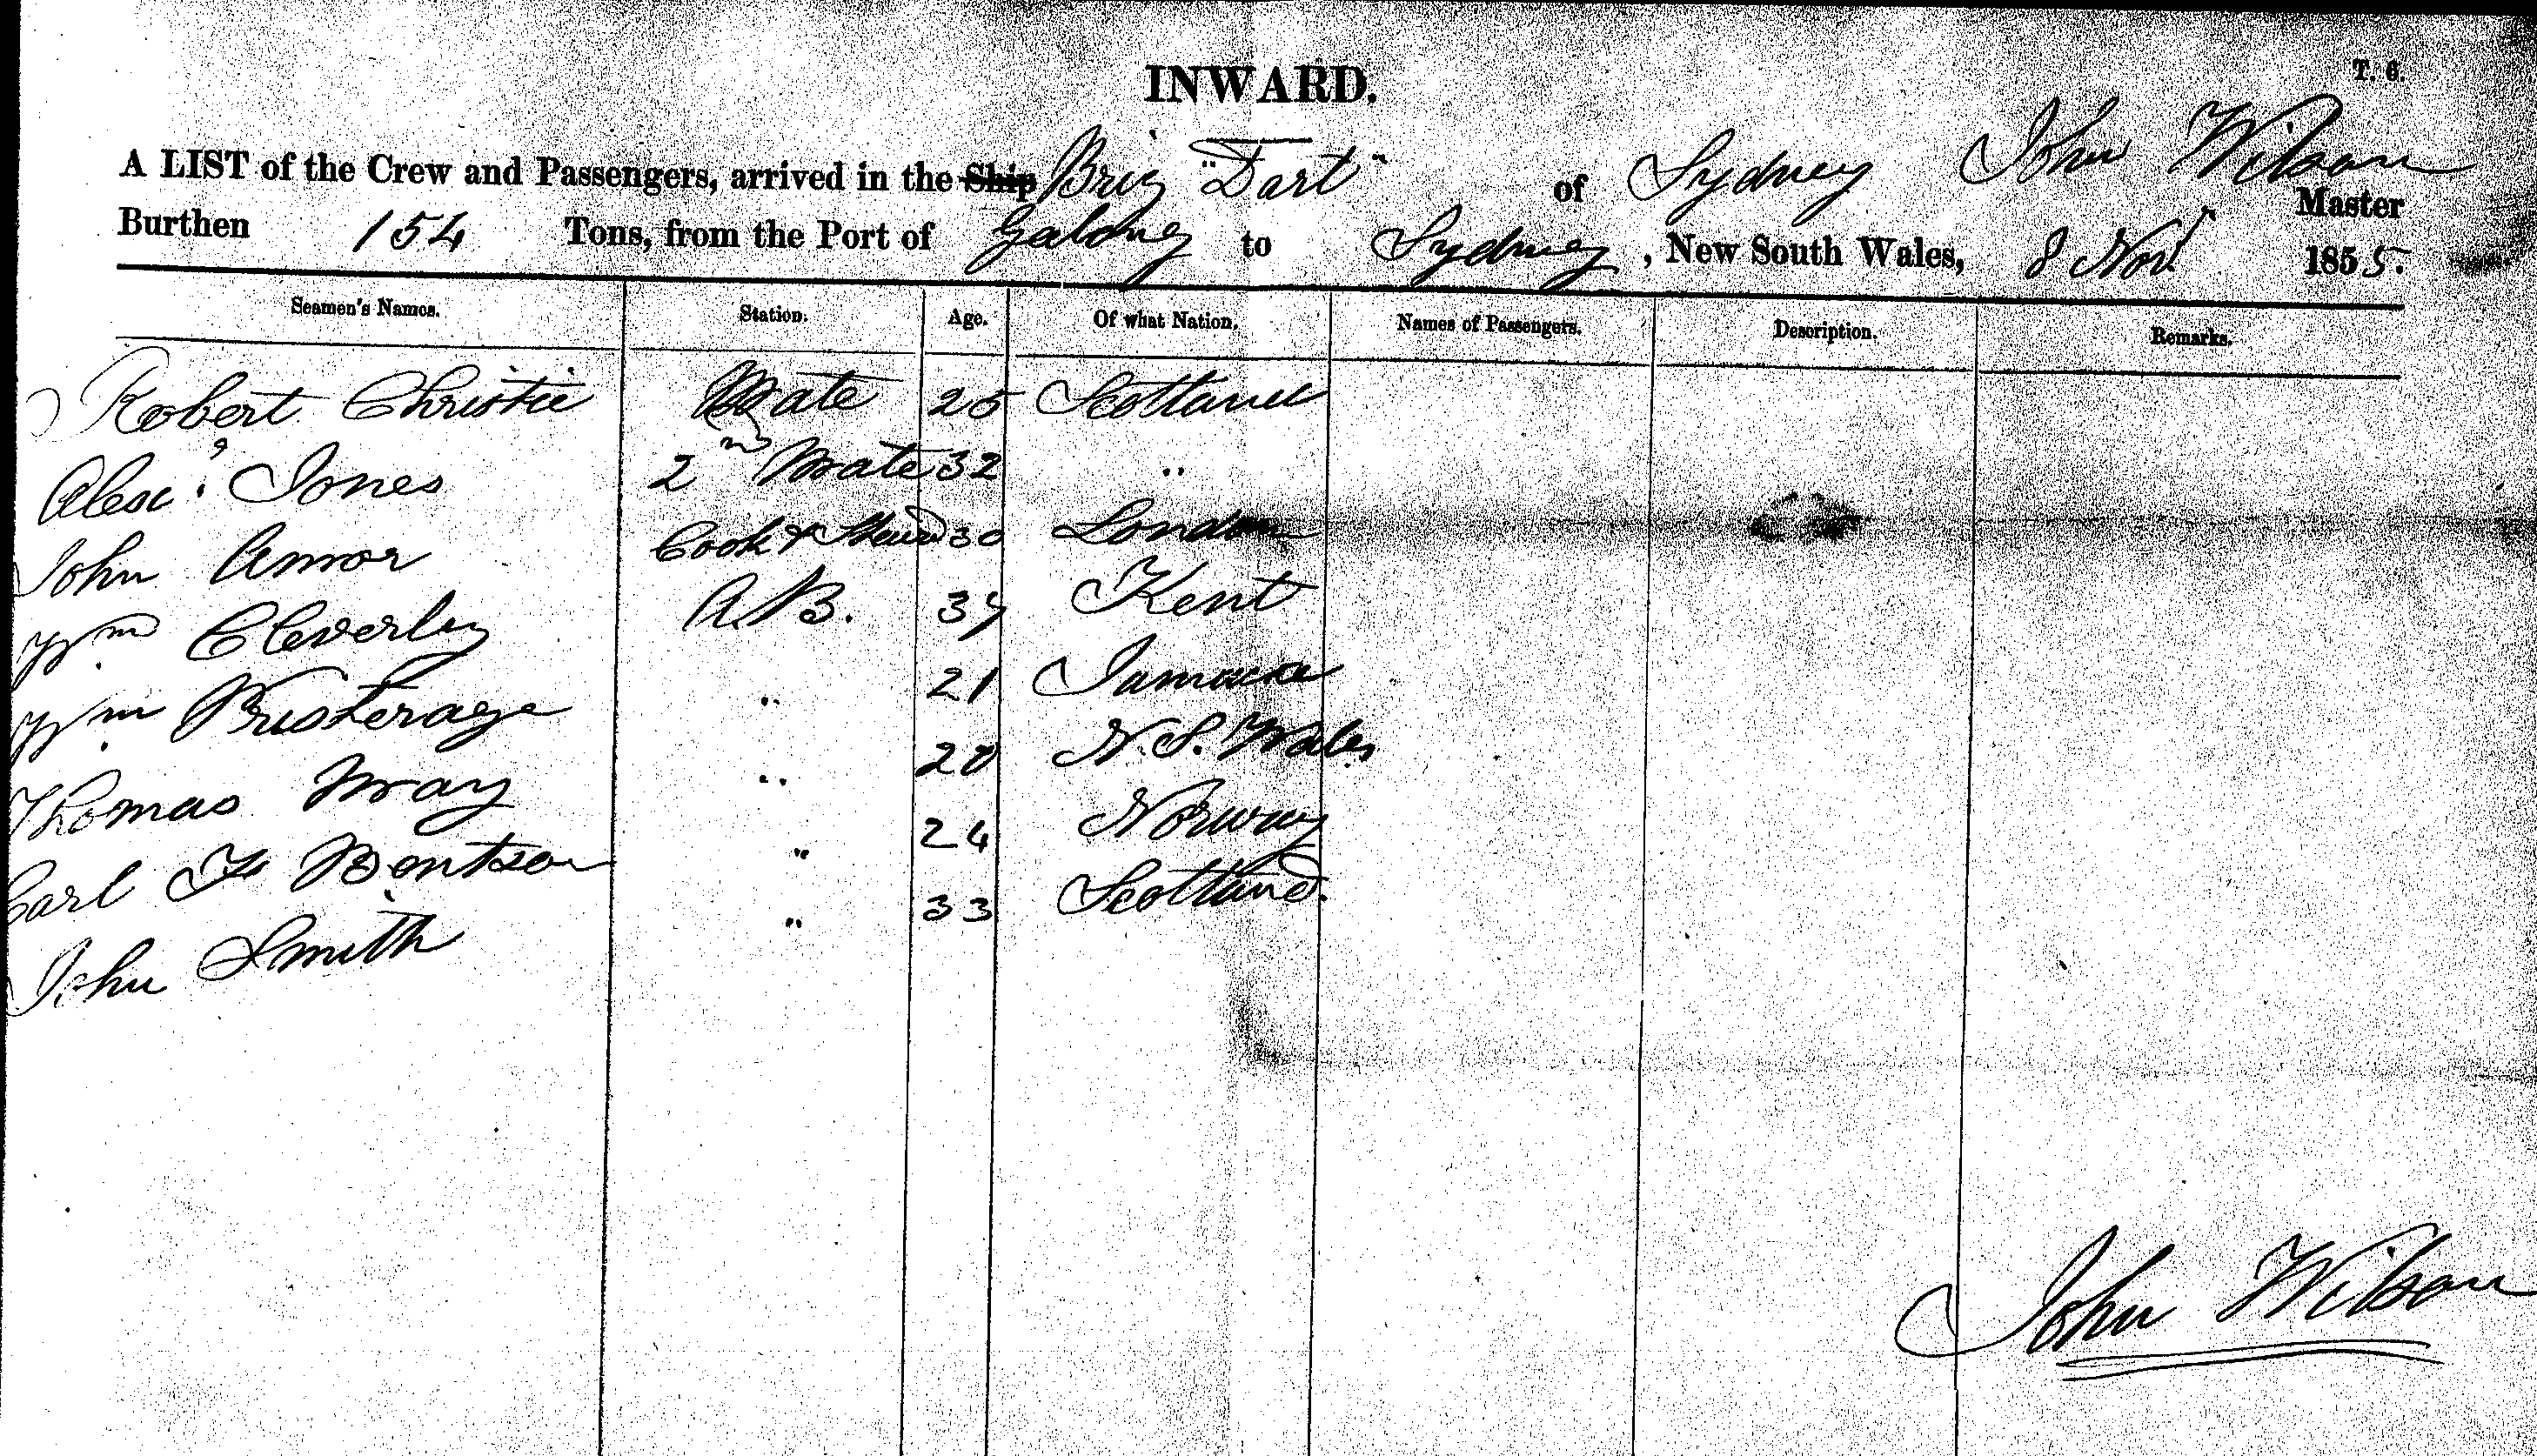 INWARD.
T. 6.
A LIST of the Crew and Passengers, arrived in the Ship Brig "Dart" of Sydney John Wilson Master
Burthen 154 Tons, from the Port of to Sydney, New South Wales, 8 Novr 1855.
Seamen's Names. Station. Age. Of what Nation. Names of Passengers. Description. Remarks.
Robert Christie Mate 25 Scotland
Alexr Jones 2nd Mate 32 "
John Amor Cook & Stewd 30 London
Wm Cleverley A.B. 37 Kent
Wm " 21 Jamaica
Thomas May " 20 N. S. Wales
Carl F Bentson " 24 Norway
John Smith " 33 Scotland.
John Wilson